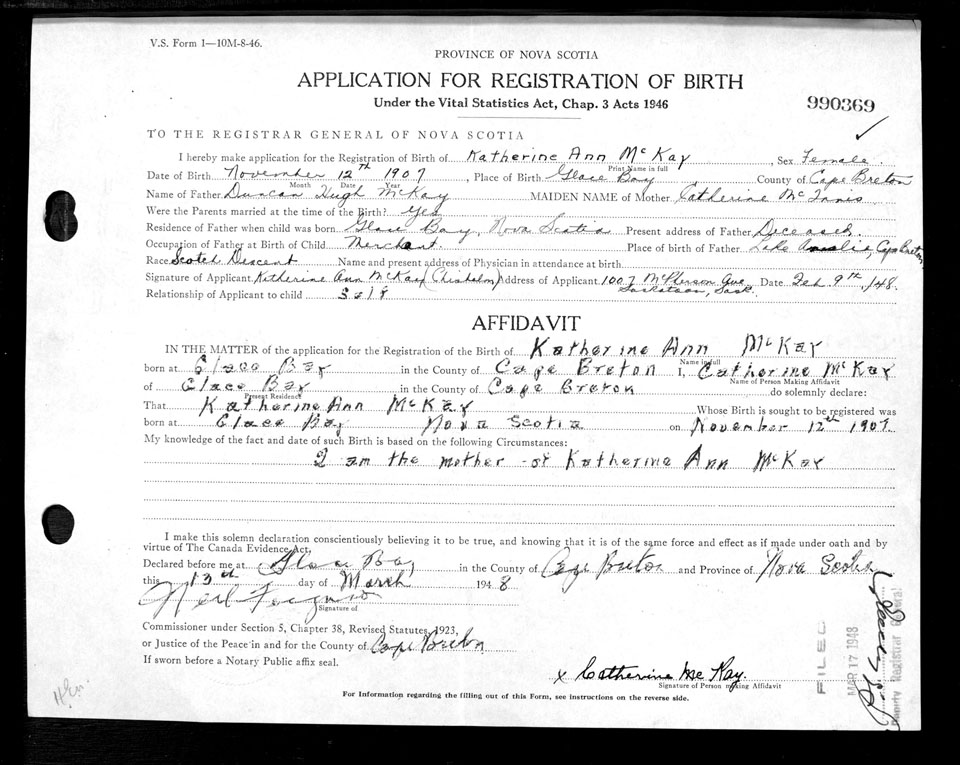 V.S. Form 1—10M-8-46.
PROVINCE OF NOVA SCOTIA
APPLICATION FOR REGISTRATION OF BIRTH
Under the Vital Statistics Act, Chap. 3 Acts 1946
990369
TO THE REGISTRAR GENERAL OF NOVA SCOTIA
I hereby make application for the Registration of Birth of Katherine Ann McKay Sex Female.
Print Name in full
Date of Birth November 12th 1907, Place of Birth Glace Bay County of Cape Breton
Month Date Year
Name of Father Duncan Hugh McKay MAIDEN NAME of Mother Catherine McInnis
Were the Parents married at the time of the Birth? Yes
Residence of Father when child was born Glace Bay, Nova Scotia Present address of Father Deceased.
Occupation of Father at Birth of Child Merchant. Place of birth of Father Lake Ainslie, Cape Breton
Race Scotch Descent Name and present address of Physician in attendance at birth
Signature of Applicant Katherine Ann McKay (Chisholm) Address of Applicant 1007 McPherson Ave Saskatoon, Sask. Date Feb 9th /48.
Relationship of Applicant to child Self
AFFIDAVIT
IN THE MATTER of the application for the Registration of the Birth of Katherine Ann McKay
Name in full
born at Glace Bay in the County of Cape Breton I, Catherine McKay
Name of Person Making Affidavit
of Glace Bay in the County of Cape Breton do solemnly declare:
Present Residence
That Katherine Ann McKay Whose Birth is sought to be registered was
born at Glace Bay Nova Scotia on November 12th 1907
My knowledge of the fact and date of such Birth is based on the following Circumstances:
I am the mother of Katherine Ann McKay
I make this solemn declaration conscientiously believing it to be true, and knowing that it is of the same force and effect as if made under oath and by
virtue of The Canada Evidence Act,
Declared before me at Glace Bay in the County of Cape Breton and Province of Nova Scotia
this 13th day of March 1948
Neil Ferguson
Signature of
Commissioner under Section 5, Chapter 38, Revised Statutes, 1923,
or Justice of the Peace in and for the County of Cape Breton
If sworn before a Notary Public affix seal.
x Catherine McKay.
Signature of Person making Affidavit
For Information regarding the filling out of this Form, see instructions on the reverse side.
FILED
MAR 17 1948
Deputy Registrar General